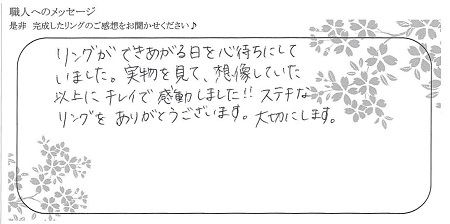 職人へのメッセージ
是非 完成したリングのご感想をお聞かせください♪
リングができあがる日を心待ちにして
いました。実物を見て、想像していた
以上にキレイで感動しました!! ステキな
リングを ありがとうございます。大切にします。